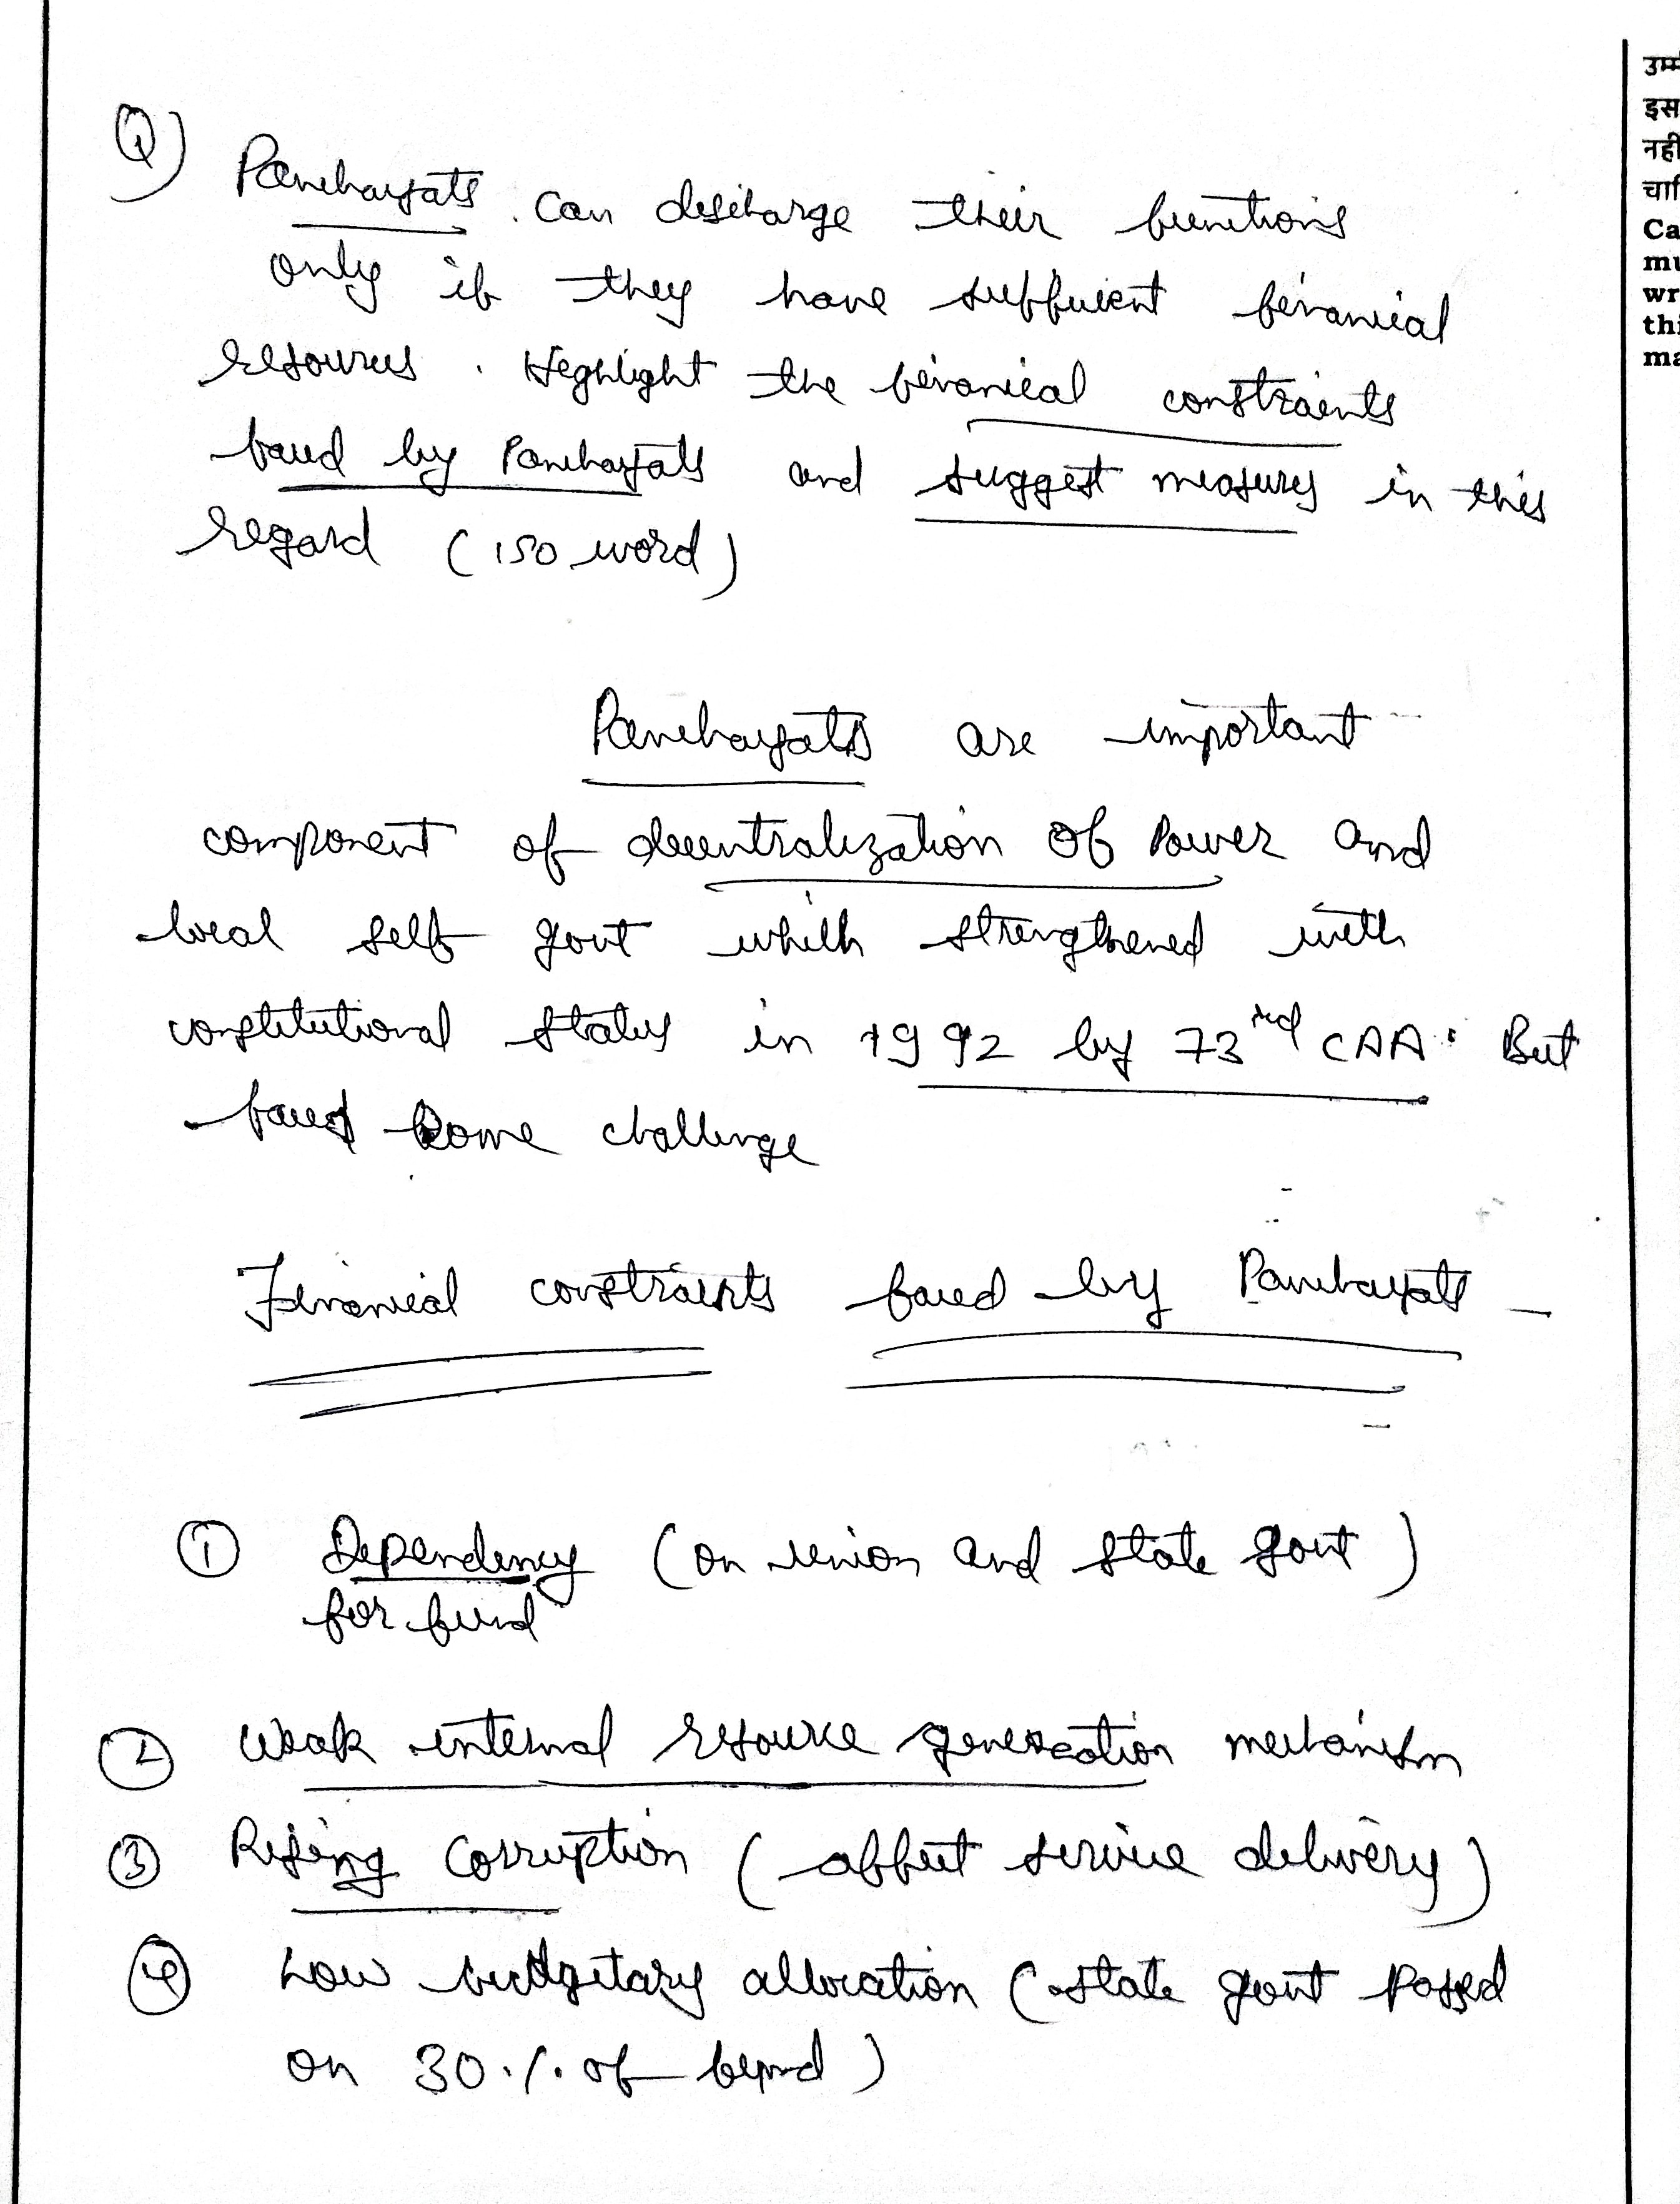 Q) Panchayats can discharge their functions
only if they have sufficient financial
resources. Highlight the financial constraints
faced by Panchayats and suggest measures in this
regard (150 word)
Panchayats are important
component of decentralization of Power and
local self govt which strengthened with
constitutional status in 1992 by 73rd CAA. But
faced some challenge
Financial constraints faced by Panchayats -
① Dependency (on union and state govt)
for fund
② Weak internal resource generation mechanism
③ Rising Corruption (affect service delivery)
④ Low budgetary allocation (state govt passed
on 30% of fund)
उम्मी
इस
नहीं
चाहि
Ca
mu
wr
thi
ma